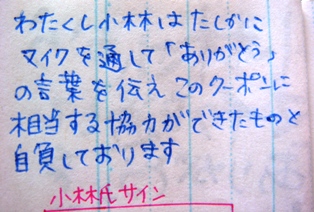 わたくし小林はたしかに
マイクを通して「ありがとう」
の言葉を伝えこのクーポンに
相当する協力ができたものと
自負しております
小林氏サイン